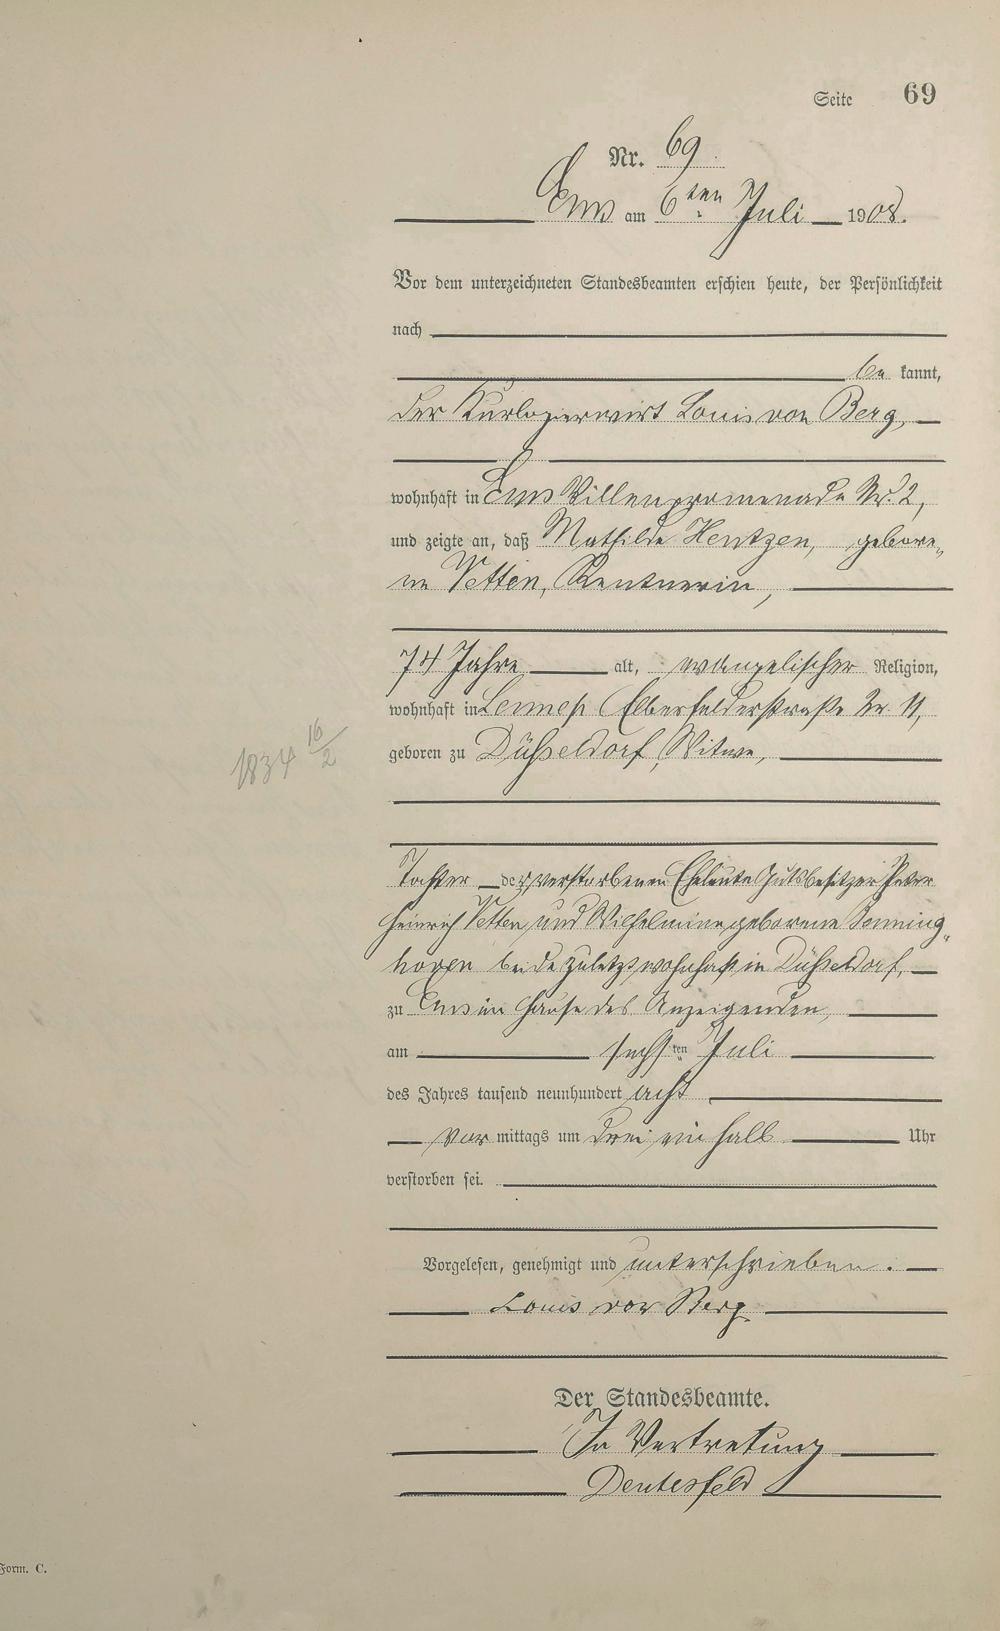 Seite 69
Nr. 69.
Ems am 6ten Juli 1908.
Vor dem unterzeichneten Standesbeamten erschien heute, der Persönlichkeit
nach
be kannt,
der Kurlogierwirt Louis von Berg,
wohnhaft in Ems Villenpromenade Nr. 2,
und zeigte an, daß Mathilde Hentzen, gebore„
ne Vetten, Rentnerin,
74 Jahre alt, evangelischer Religion,
wohnhaft in Lennep Elberfelderstraße Nr. 11,
1834 16/2
geboren zu Düsseldorf, Witwe,
Tochter der verstorbenen Eheleute Gutsbesitzer Peter
Heinrich Vetten und Wilhelmine geborene
beide zuletzt wohnhaft in Düsseldorf,
zu Ems im Hause des Anzeigenden,
am sechsten Juli
des Jahres tausend neunhundert acht
Vor mittags um drei ein halb Uhr
verstorben sei.
Vorgelesen, genehmigt und unterschrieben.
Louis von Berg
Der Standesbeamte.
In Vertretung
Deutesfeld
Form. C.